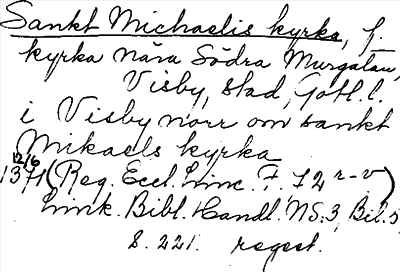 Sankt Michaelis kyrka, f.
kyrka nära Södra Murgatan,
Visby, stad, Gotl. l.
i Visby norr om sankt
Mikaels kyrka
12/6
1371 (Reg. Eccl. Linc. F. 72 r-v)
Link. Bibl. Handl. NS. 3, Bil. 5
s. 221. regest.